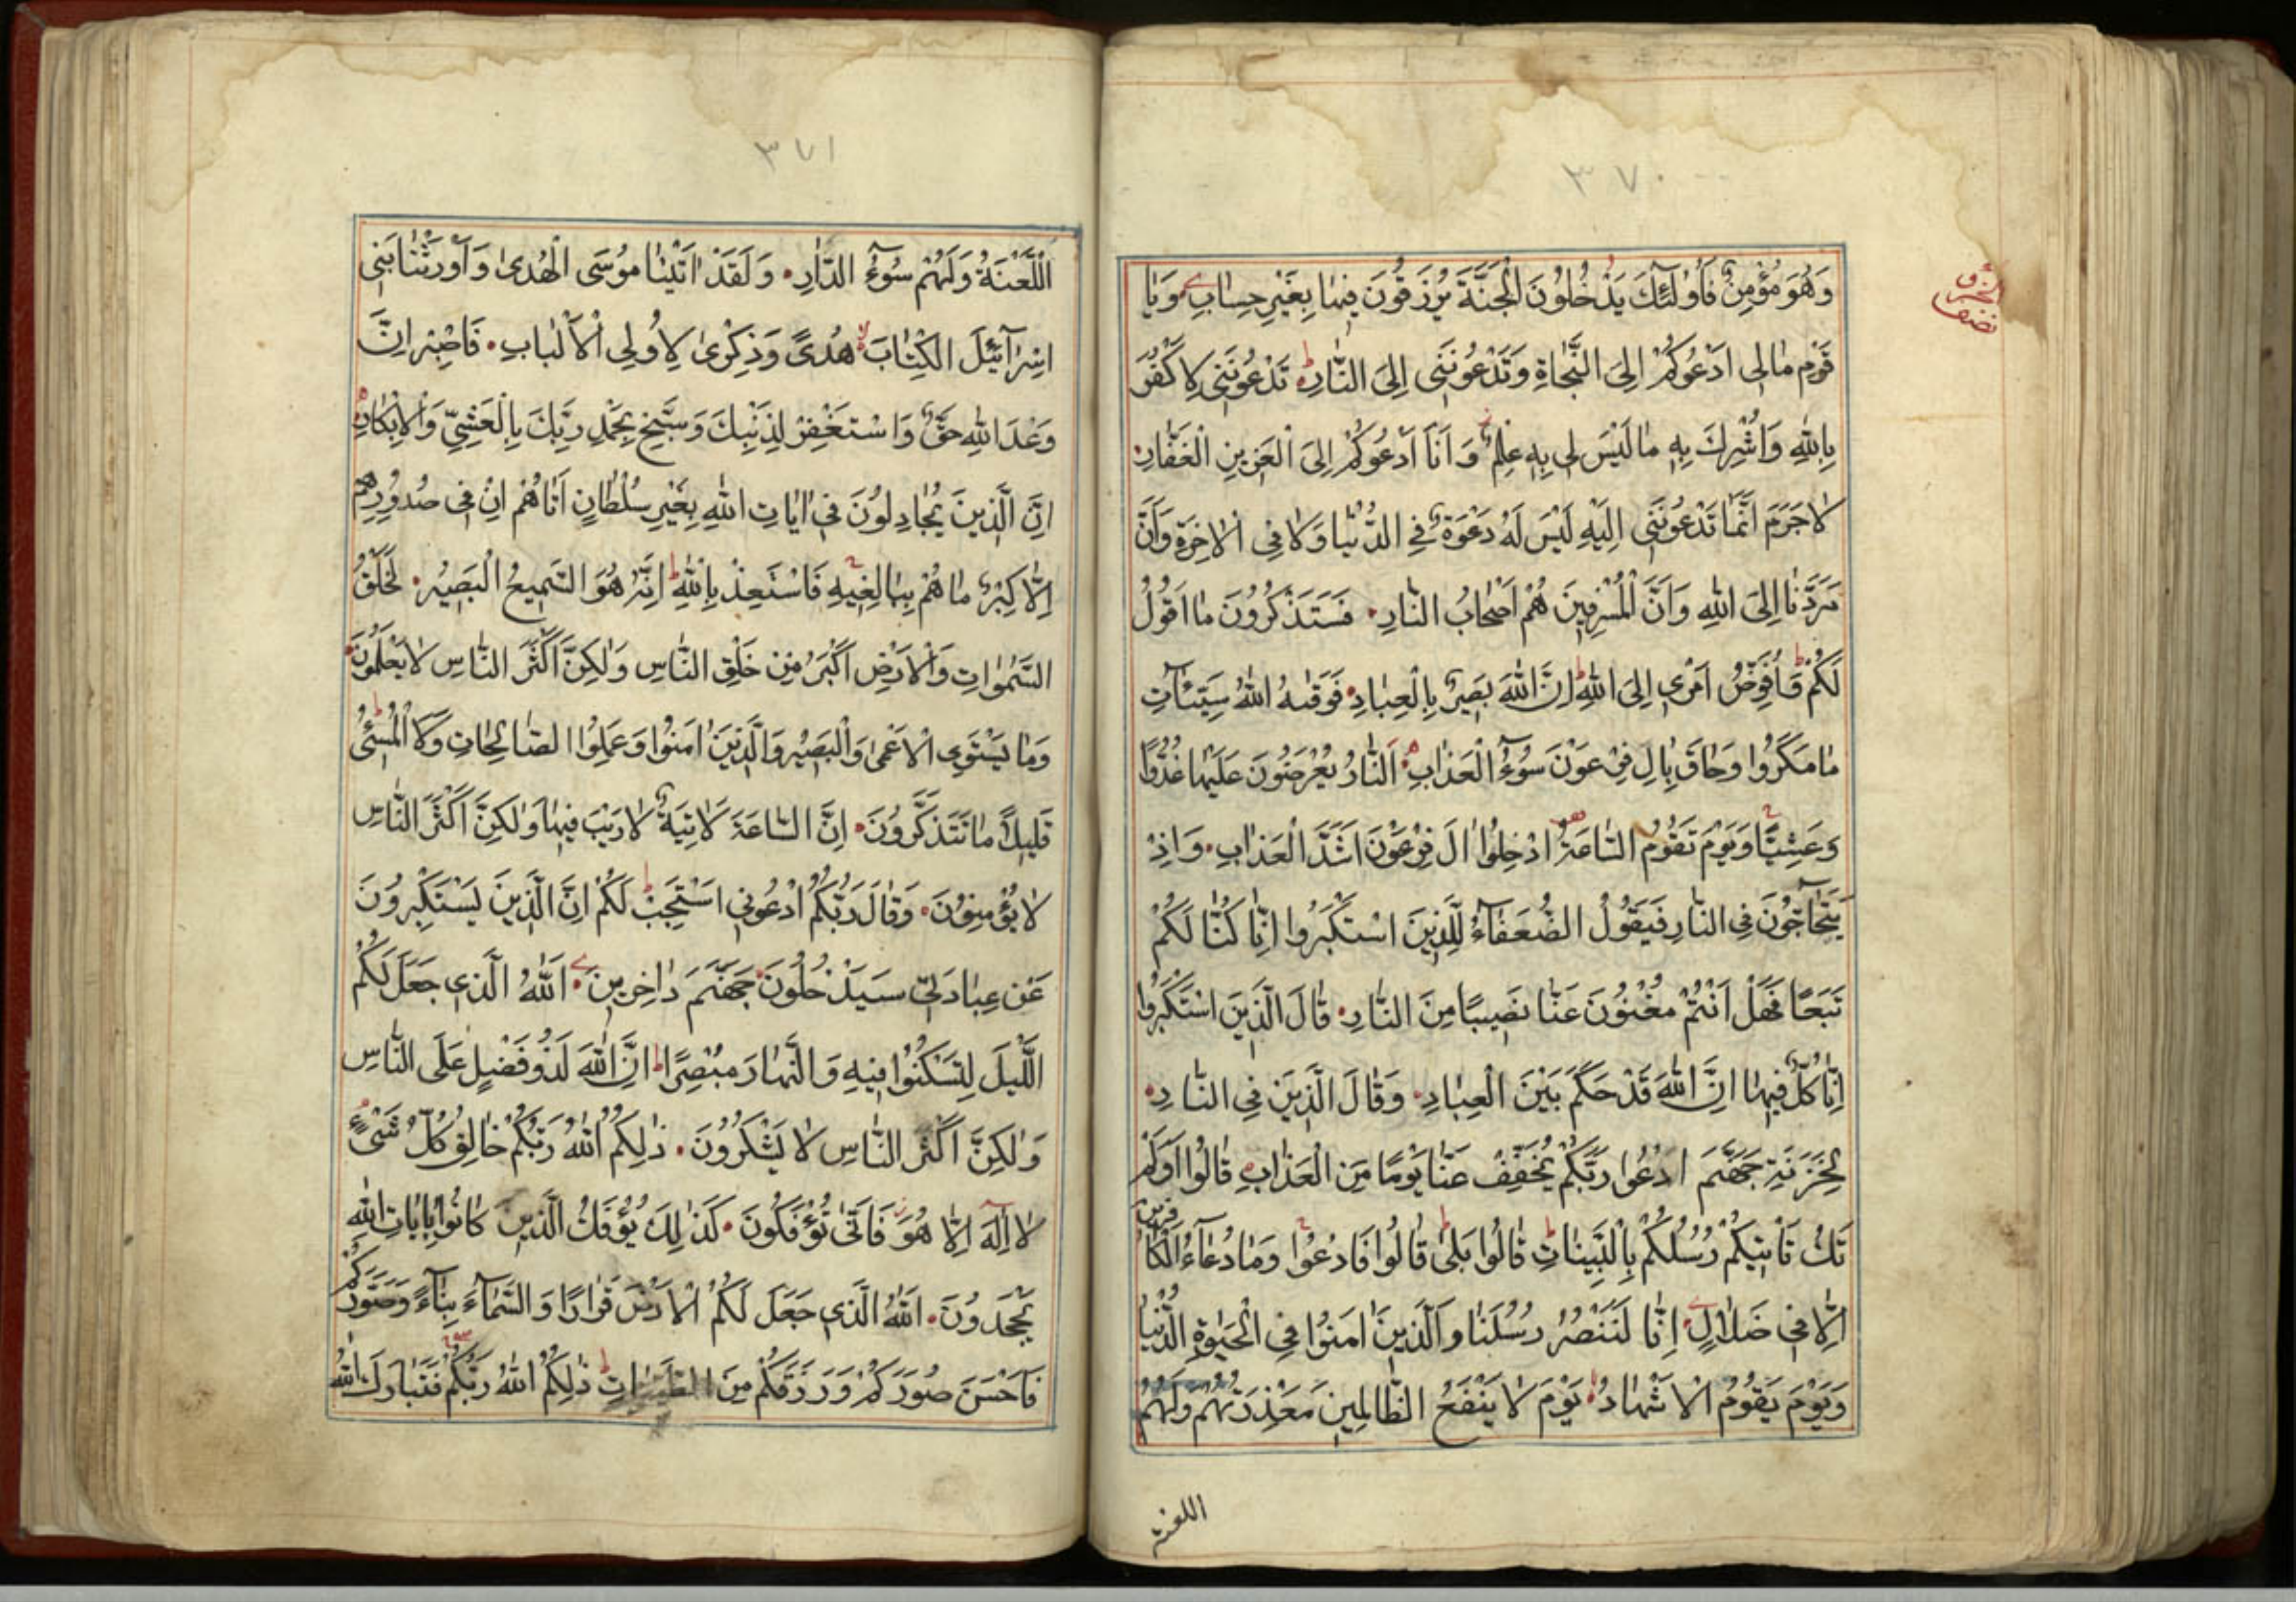 ٣٧٠
وَهُوَ مُؤْمِنٌ فَأُولٰئِكَ يَدْخُلُونَ الْجَنَّةَ يُرْزَقُونَ فِيهَا بِغَيْرِ حِسَابٍ وَيَا
قَوْمِ مَالِى اَدْعُوكُمْ اِلَى النَّجَاةِ وَتَدْعُونَنِى اِلَى النَّارِ تَدْعُونَنِى لِاَكْفُرَ
بِاللّٰهِ وَاُشْرِكَ بِهِ مَا لَيْسَ لِى بِهِ عِلْمٌ وَاَنَا اَدْعُوكُمْ اِلَى الْعَزِيزِ الْغَفَّارِ
لَا جَرَمَ اَنَّمَا تَدْعُونَنِى اِلَيْهِ لَيْسَ لَهُ دَعْوَةٌ فِى الدُّنْيَا وَلَا فِى الْاٰخِرَةِ وَاَنَّ
مَرَدَّنَا اِلَى اللّٰهِ وَاَنَّ الْمُسْرِفِينَ هُمْ اَصْحَابُ النَّارِ فَسَتَذْكُرُونَ مَا اَقُولُ
لَكُمْ وَاُفَوِّضُ اَمْرِى اِلَى اللّٰهِ اِنَّ اللّٰهَ بَصِيرٌ بِالْعِبَادِ فَوَقٰيهُ اللّٰهُ سَيِّئَاتِ
مَا مَكَرُوا وَحَاقَ بِاٰلِ فِرْعَوْنَ سُوٓءُ الْعَذَابِ اَلنَّارُ يُعْرَضُونَ عَلَيْهَا غُدُوًّا
وَعَشِيًّا وَيَوْمَ تَقُومُ السَّاعَةُ اَدْخِلُوا اٰلَ فِرْعَوْنَ اَشَدَّ الْعَذَابِ وَاِذْ
يَتَحَآجُّونَ فِى النَّارِ فَيَقُولُ الضُّعَفَآءُ لِلَّذِينَ اسْتَكْبَرُوا اِنَّا كُنَّا لَكُمْ
تَبَعًا فَهَلْ اَنْتُمْ مُغْنُونَ عَنَّا نَصِيبًا مِنَ النَّارِ قَالَ الَّذِينَ اسْتَكْبَرُوا
اِنَّا كُلٌّ فِيهَا اِنَّ اللّٰهَ قَدْ حَكَمَ بَيْنَ الْعِبَادِ وَقَالَ الَّذِينَ فِى النَّارِ
لِخَزَنَةِ جَهَنَّمَ ادْعُوا رَبَّكُمْ يُخَفِّفْ عَنَّا يَوْمًا مِنَ الْعَذَابِ قَالُوا اَوَلَمْ
تَكُ تَأْتِيكُمْ رُسُلُكُمْ بِالْبَيِّنَاتِ قَالُوا بَلٰى قَالُوا فَادْعُوا وَمَا دُعَآءُ الْكَافِرِينَ
اِلَّا فِى ضَلَالٍ اِنَّا لَنَنْصُرُ رُسُلَنَا وَالَّذِينَ اٰمَنُوا فِى الْحَيٰوةِ الدُّنْيَا
وَيَوْمَ يَقُومُ الْاَشْهَادُ يَوْمَ لَا يَنْفَعُ الظَّالِمِينَ مَعْذِرَتُهُمْ وَلَهُمُ
اللعنة
٣٧١
اللَّعْنَةُ وَلَهُمْ سُوٓءُ الدَّارِ وَلَقَدْ اٰتَيْنَا مُوسَى الْهُدٰى وَاَوْرَثْنَا بَنِى
اِسْرَآئِيلَ الْكِتَابَ هُدًى وَذِكْرٰى لِاُولِى الْاَلْبَابِ فَاصْبِرْ اِنَّ
وَعْدَ اللّٰهِ حَقٌّ وَاسْتَغْفِرْ لِذَنْبِكَ وَسَبِّحْ بِحَمْدِ رَبِّكَ بِالْعَشِىِّ وَالْاِبْكَارِ
اِنَّ الَّذِينَ يُجَادِلُونَ فِى اٰيَاتِ اللّٰهِ بِغَيْرِ سُلْطَانٍ اَتَاهُمْ اِنْ فِى صُدُورِهِمْ
اِلَّا كِبْرٌ مَا هُمْ بِبَالِغِيهِ فَاسْتَعِذْ بِاللّٰهِ اِنَّهُ هُوَ السَّمِيعُ الْبَصِيرُ لَخَلْقُ
السَّمٰوَاتِ وَالْاَرْضِ اَكْبَرُ مِنْ خَلْقِ النَّاسِ وَلٰكِنَّ اَكْثَرَ النَّاسِ لَا يَعْلَمُونَ
وَمَا يَسْتَوِى الْاَعْمٰى وَالْبَصِيرُ وَالَّذِينَ اٰمَنُوا وَعَمِلُوا الصَّالِحَاتِ وَلَا الْمُسِىٓءُ
قَلِيلًا مَا تَتَذَكَّرُونَ اِنَّ السَّاعَةَ لَاٰتِيَةٌ لَا رَيْبَ فِيهَا وَلٰكِنَّ اَكْثَرَ النَّاسِ
لَا يُؤْمِنُونَ وَقَالَ رَبُّكُمُ ادْعُونِى اَسْتَجِبْ لَكُمْ اِنَّ الَّذِينَ يَسْتَكْبِرُونَ
عَنْ عِبَادَتِى سَيَدْخُلُونَ جَهَنَّمَ دَاخِرِينَ اَللّٰهُ الَّذِى جَعَلَ لَكُمُ
اللَّيْلَ لِتَسْكُنُوا فِيهِ وَالنَّهَارَ مُبْصِرًا اِنَّ اللّٰهَ لَذُو فَضْلٍ عَلَى النَّاسِ
وَلٰكِنَّ اَكْثَرَ النَّاسِ لَا يَشْكُرُونَ ذٰلِكُمُ اللّٰهُ رَبُّكُمْ خَالِقُ كُلِّ شَىْءٍ
لَا اِلٰهَ اِلَّا هُوَ فَاَنّٰى تُؤْفَكُونَ كَذٰلِكَ يُؤْفَكُ الَّذِينَ كَانُوا بِاٰيَاتِ اللّٰهِ
يَجْحَدُونَ اَللّٰهُ الَّذِى جَعَلَ لَكُمُ الْاَرْضَ قَرَارًا وَالسَّمَآءَ بِنَآءً وَصَوَّرَكُمْ
فَاَحْسَنَ صُوَرَكُمْ وَرَزَقَكُمْ مِنَ الطَّيِّبَاتِ ذٰلِكُمُ اللّٰهُ رَبُّكُمْ فَتَبَارَكَ اللّٰهُ